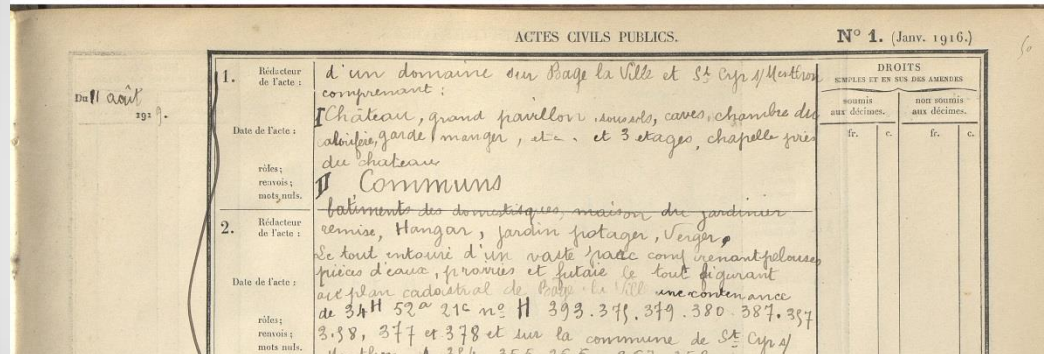 ACTES CIVILS PUBLICS.
N° 1. (Janv. 1916.)
Du 11 août
1919.
1.
Rédacteur
de l'acte :
Date de l'acte :
rôles ;
renvois ;
mots nuls.
d'un domaine sur Bage la Ville et St Cyr s/ Menthon
comprenant :
I Château, grand pavillon, sous sols, caves, chambre du
calorifère, garde manger, etc. et 3 etages, chapelle près
du chateau
II Communs
batiments des domestiques, maison du jardinier
2.
Rédacteur
de l'acte :
Date de l'acte :
rôles ;
renvois ;
mots nuls.
remise, Hangar, jardin potager, Verger,
Le tout entouré d'un vaste parc comprenant pelouses
pièces d'eaux, prairies et futaie le tout figurant
au plan cadastral de Bage la Ville une contenance
de 34H 52a 21c no H 393. 379. 380. 387. 357
358, 377 et 378 et sur la commune de St Cyr s/
DROITS
SIMPLES ET EN SUS DES AMENDES
soumis
aux décimes.
non soumis
aux décimes.
fr.
c.
fr.
c.